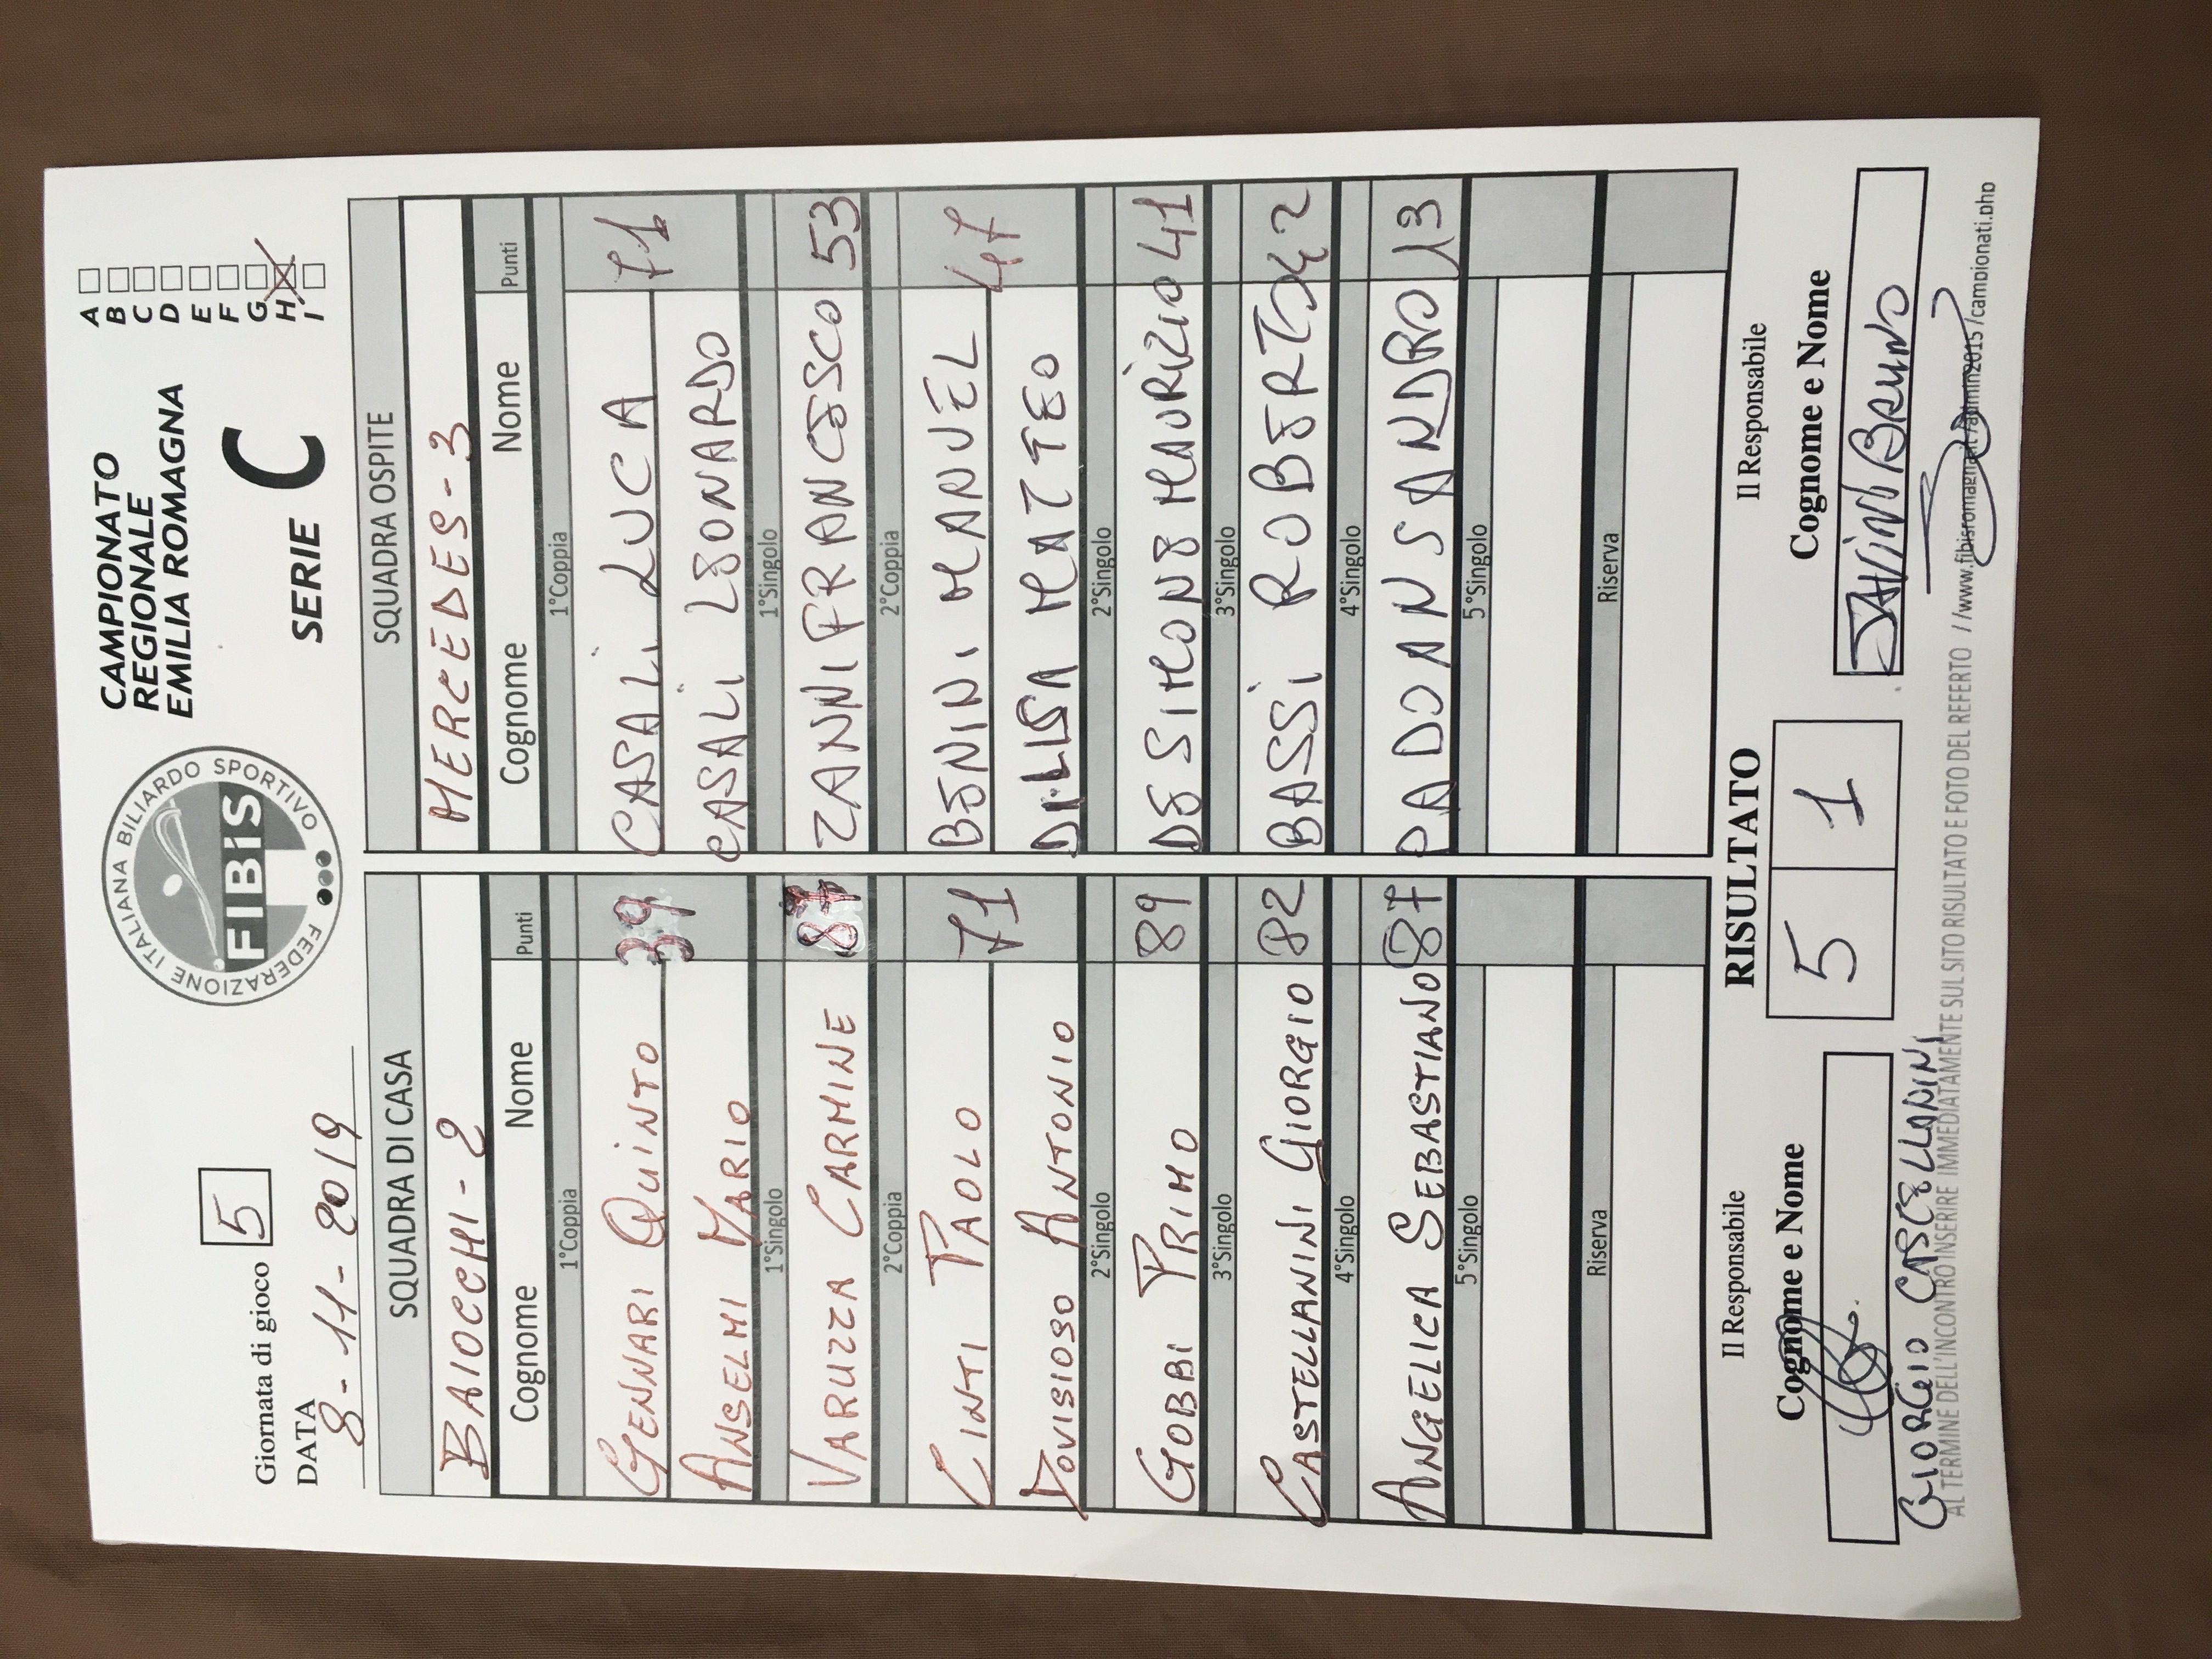 Giornata di gioco 5
DATA 8-11-2019
FEDERAZIONE ITALIANA BILIARDO SPORTIVO
FIBiS
CAMPIONATO
REGIONALE
EMILIA ROMAGNA
SERIE C
A
B
C
D
E
F
G
H
I
SQUADRA DI CASA
BAIOCCHI-2
Cognome Nome Punti
1°Coppia
GENNARI QUINTO 39
ANSELMI MARIO
1°Singolo
VARUZZA CARMINE 87
2°Coppia
CINTI PAOLO 71
DOVISIOSO ANTONIO
2°Singolo
GOBBI PRIMO 89
3°Singolo
CASTELLANINI GIORGIO 82
4°Singolo
ANGELICA SEBASTIANO 87
5°Singolo
Riserva
SQUADRA OSPITE
MERCEDES-3
Cognome Nome Punti
1°Coppia
CASALI LUCA 71
CASALI LEONARDO
1°Singolo
ZANNI FRANCESCO 53
2°Coppia
BENINI MANUEL 47
DI LISA MATTEO
2°Singolo
DE SIMONE MAURIZIO 41
3°Singolo
BASSI ROBERTO 42
4°Singolo
PADOAN SANDRO 13
5°Singolo
Riserva
Il Responsabile
Cognome e Nome
GIORGIO CASTELLANINI
RISULTATO
5 1
Il Responsabile
Cognome e Nome
BRUNO
AL TERMINE DELL'INCONTRO INSERIRE IMMEDIATAMENTE SUL SITO RISULTATO E FOTO DEL REFERTO //www.fibisromagna.it/admin2015/campionati.php